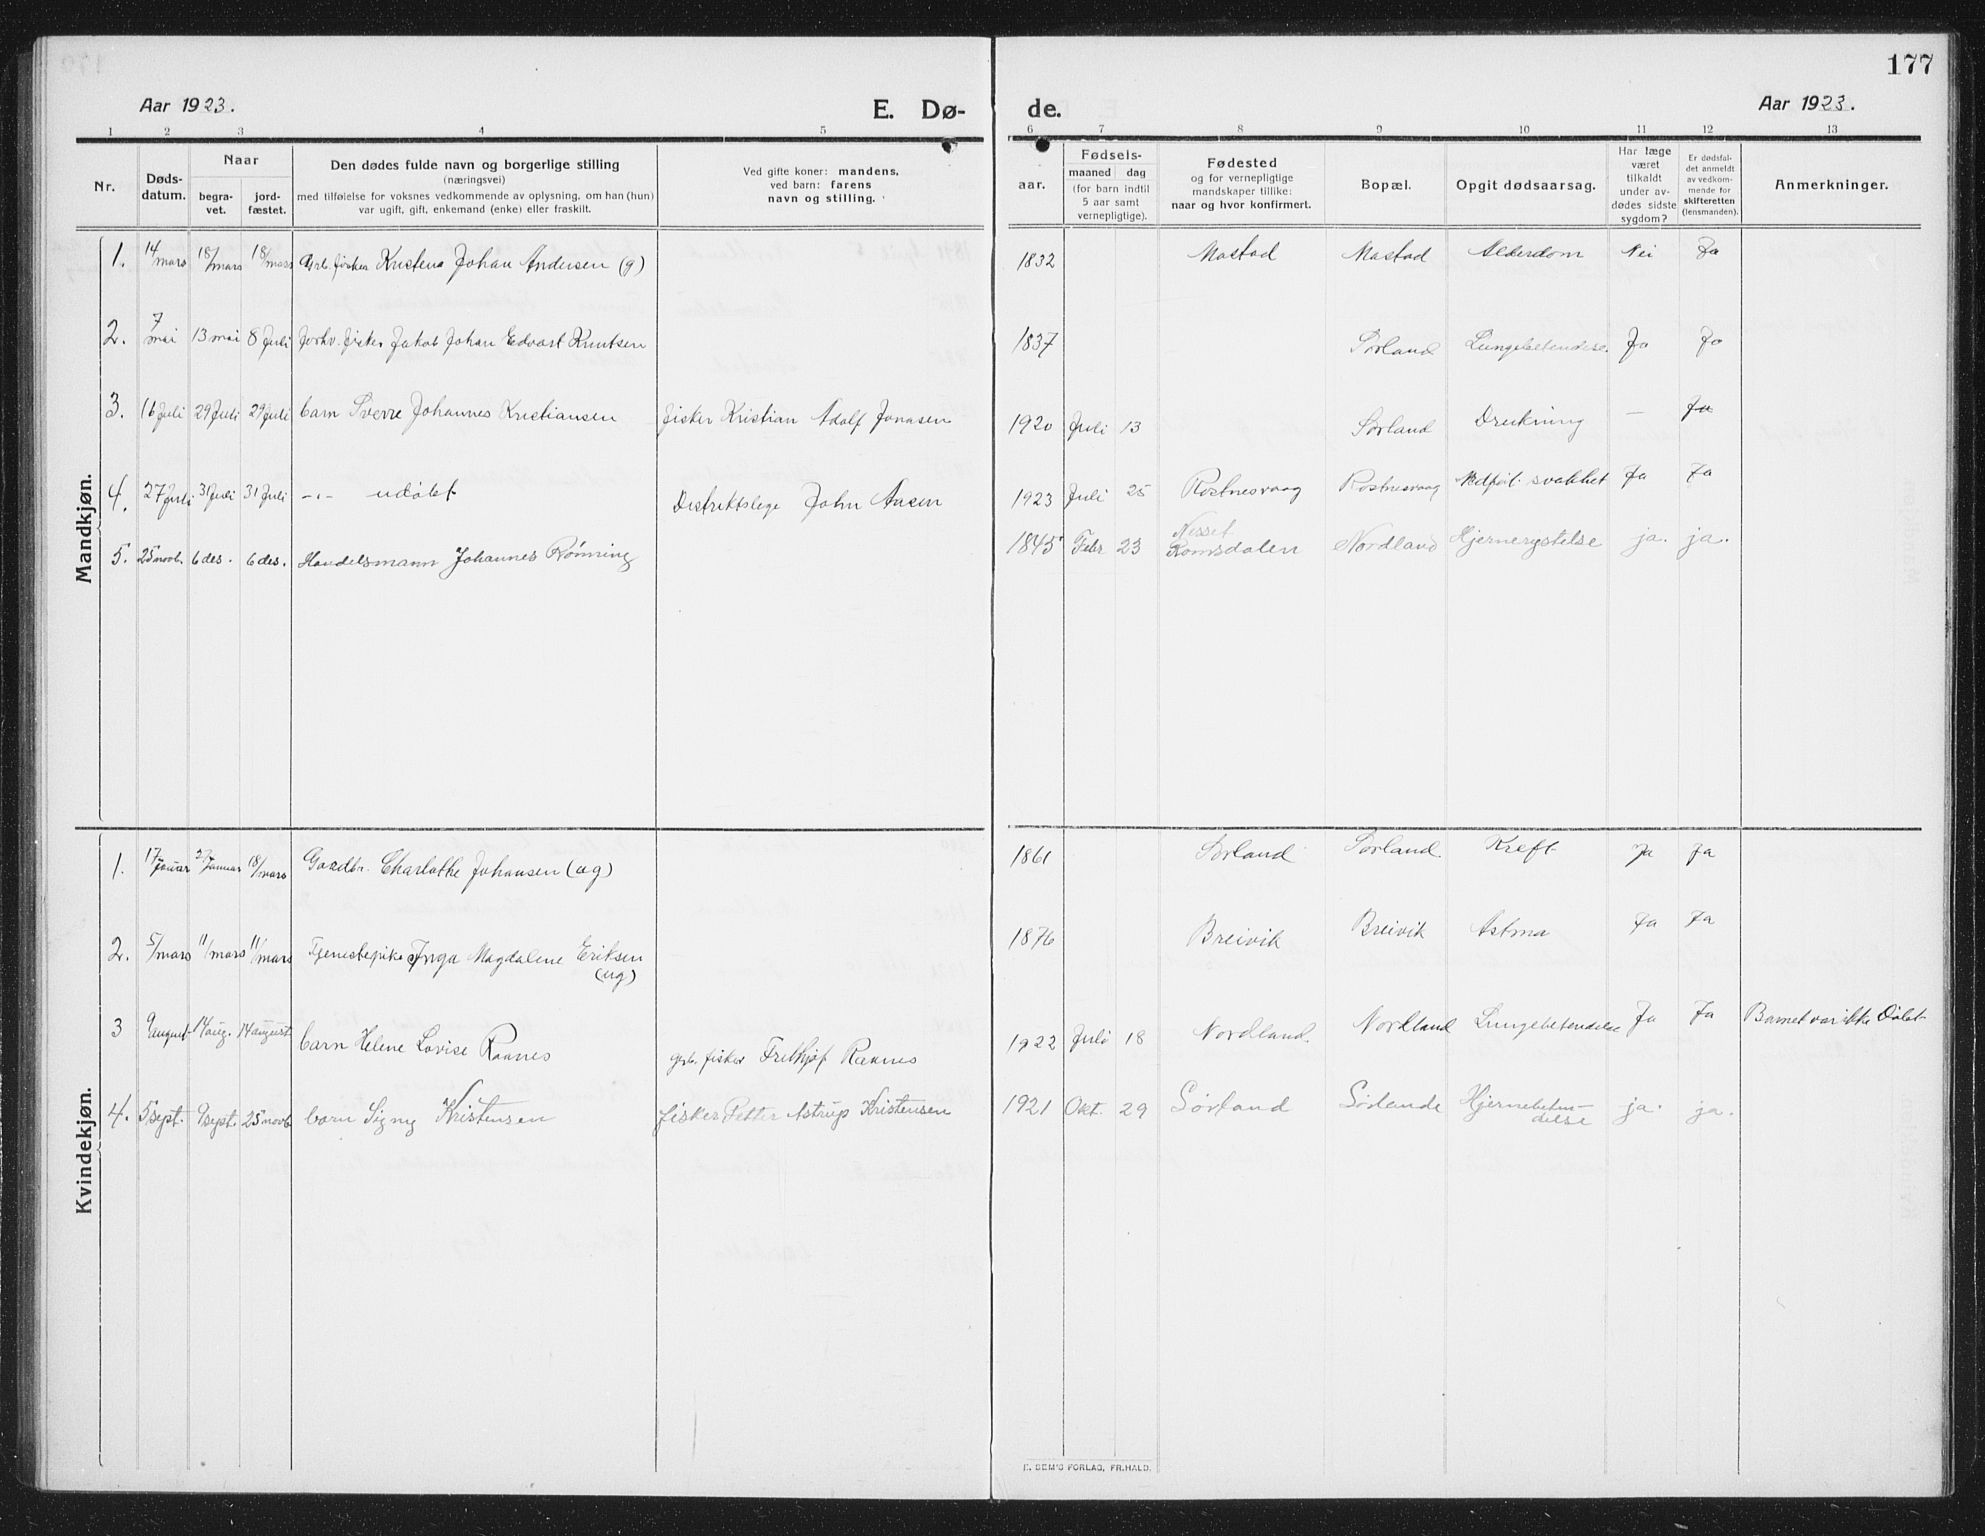 177
Aar 1923.
E. Dø-
de.
Aar 1923.
1 2 3 4 5 6 7 8 9 10 11 12 13
Nr.
Døds-
datum.
Naar
begra-
vet.
jord-
fæstet.
Den dødes fulde navn og borgerlige stilling
(næringsvei)
med tilføielse for voksnes vedkommende av oplysning, om han (hun)
var ugift, gift, enkemand (enke) eller fraskilt.
Ved gifte koner: mandens,
ved barn: farens
navn og stilling.
aar.
Fødsels-
maaned dag
(for barn indtil
5 aar samt
vernepligtige).
Fødested
og for vernepligtige
mandskaper tillike:
naar og hvor konfirmert.
Bopæl.
Opgit dødsaarsag.
Har læge
været
tilkaldt
under av-
dødes sidste
sygdom?
Er dødsfal-
det anmeldt
av vedkom-
mende for
skifteretten
(lensmanden).
Anmerkninger.
Mandkjøn.
1. 14/mars 18/mars 18/mars Grb. fisker Kristens Johan Andersen (g) 1832 Mostad Mostad Alderdom Nei Ja
2. 7 mai 13 mai 8 Juli Forhv. fisker Jakob Johan Edvart Knutsen 1837 Sørland Lungebetendelse Ja Ja
3. 16 Juli 29 Juli 29 Juli barn Sverre Johannes Kristiansen fisker Kristian Adolf Jonasen 1920 Juli 13 Sørland Drukning — Ja
4. 27 Juli 31 Juli 31 Juli -"- udøbt Distriktslege John Aasen 1923 Juli 25 Røstnesvaag Røstnesvaag Medfødt svakhet Ja Ja
5. 25 novb. 6 des. 6 des. Handelsmann Johannes Rønning 1845 Febr 23 Nesset Romsdalen Nordland Hjernerystelse ja. ja.
Kvindekjøn.
1. 17/Januar 27/Januar 18/mars Gaardbr. Charlothe Johansen (ug) 1861 Sørland Sørland Kreft Ja Ja
2. 5/mars 11/mars 11/mars Tjenestepike Inga Magdalene Eriksen
(ug) 1876 Breivik Breivik Astma Ja Ja
3 9 august 14 aug. 14 august barn Helene Lovise Raanes grb. fisker Frithjof Raanes 1922 Juli 18 Nordland Nordland Lungebetendelse Ja Ja Barnet var ikke Døbt
4. 5 sept. 9 sept. 25 novb. barn Signy Kristensen fisker Petter Astrup Kristensen 1921 Okt. 29 Sørland Sørland Hjernebeten-
delse ja. ja.
E. SEM'S FORLAG, FR.HALD.